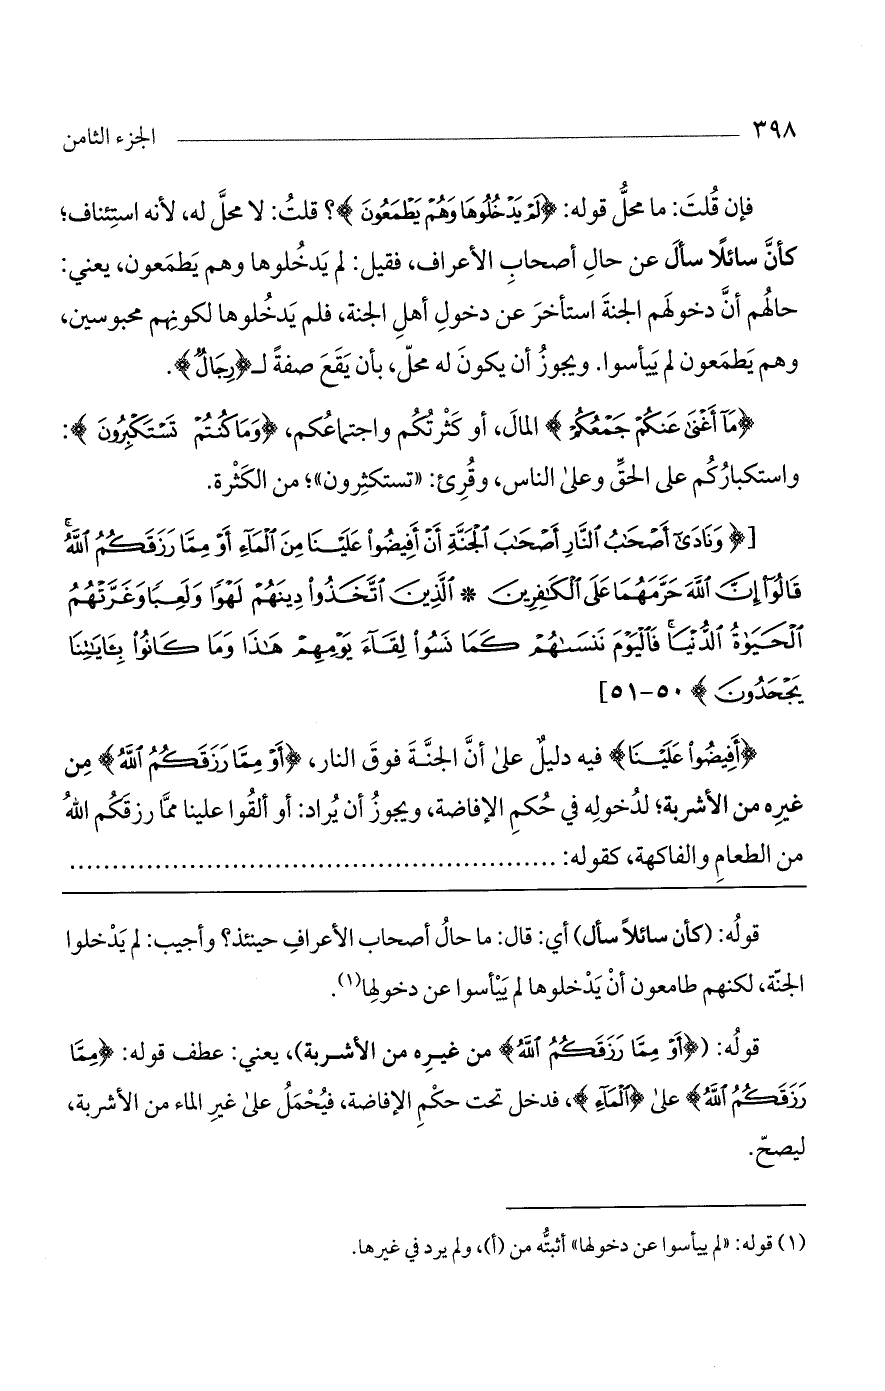 ٣٩٨ الجزء الثامن
فإن قُلتَ: ما محلُّ قوله: ﴿لَمْ يَدْخُلُوهَا وَهُمْ يَطْمَعُونَ﴾؟ قلتُ: لا محلَّ له، لأنه استِئناف؛
كأنَّ سائلًا سألَ عن حالِ أصحابِ الأعراف، فقيل: لم يَدخُلوها وهم يَطمَعون، يعني:
حالُهم أنَّ دخولَهم الجنةَ استأخرَ عن دخولِ أهلِ الجنة، فلم يَدخُلوها لكونِهم محبوسين،
وهم يَطمَعون لم يَيأسوا. ويجوزُ أن يكونَ له محلّ، بأن يَقَعَ صفةً لـ﴿رِجَالٌ﴾.
﴿مَآ أَغْنَىٰ عَنكُمْ جَمْعُكُمْ﴾ المالَ، أو كَثْرتُكُم واجتماعُكم، ﴿وَمَا كُنتُمْ تَسْتَكْبِرُونَ﴾:
واستكبارُكُم على الحقِّ وعلىٰ الناس، وقُرِئ: «تستكثِرون»؛ من الكَثْرة.
[﴿وَنَادَىٰٓ أَصْحَٰبُ ٱلنَّارِ أَصْحَٰبَ ٱلْجَنَّةِ أَنْ أَفِيضُوا۟ عَلَيْنَا مِنَ ٱلْمَآءِ أَوْ مِمَّا رَزَقَكُمُ ٱللَّهُ ۚ
قَالُوٓا۟ إِنَّ ٱللَّهَ حَرَّمَهُمَا عَلَى ٱلْكَٰفِرِينَ * ٱلَّذِينَ ٱتَّخَذُوا۟ دِينَهُمْ لَهْوًا وَلَعِبًا وَغَرَّتْهُمُ
ٱلْحَيَوٰةُ ٱلدُّنْيَا ۚ فَٱلْيَوْمَ نَنسَىٰهُمْ كَمَا نَسُوا۟ لِقَآءَ يَوْمِهِمْ هَٰذَا وَمَا كَانُوا۟ بِـَٔايَٰتِنَا
يَجْحَدُونَ﴾ ٥٠-٥١]
﴿أَفِيضُوا۟ عَلَيْنَا﴾ فيه دليلٌ علىٰ أنَّ الجنَّةَ فوقَ النار، ﴿أَوْ مِمَّا رَزَقَكُمُ ٱللَّهُ﴾ مِن
غيرِه من الأشربة؛ لدُخولِه في حُكمِ الإفاضة، ويجوزُ أن يُراد: أو ألقُوا علينا ممَّا رزقَكُم اللهُ
من الطعامِ والفاكهة، كقوله: ........................................................
قولُه: (كأن سائلاً سأل) أي: قال: ما حالُ أصحاب الأعرافِ حينئذ؟ وأجيب: لم يَدْخلوا
الجنّة، لكنهم طامعون أنْ يَدْخلوها لم يَيْأسوا عن دخولِها(١).
قولُه: (﴿أَوْ مِمَّا رَزَقَكُمُ ٱللَّهُ﴾ من غيرِه من الأشربة)، يعني: عطف قوله: ﴿مِمَّا
رَزَقَكُمُ ٱللَّهُ﴾ علىٰ ﴿ٱلْمَآءِ﴾، فدخل تحت حكْمِ الإفاضة، فيُحْمَلُ علىٰ غيرِ الماء من الأشربة،
ليصحّ.
(١) قوله: «لم ييأسوا عن دخولها» أثبتُّه من (أ)، ولم يرد في غيرها.